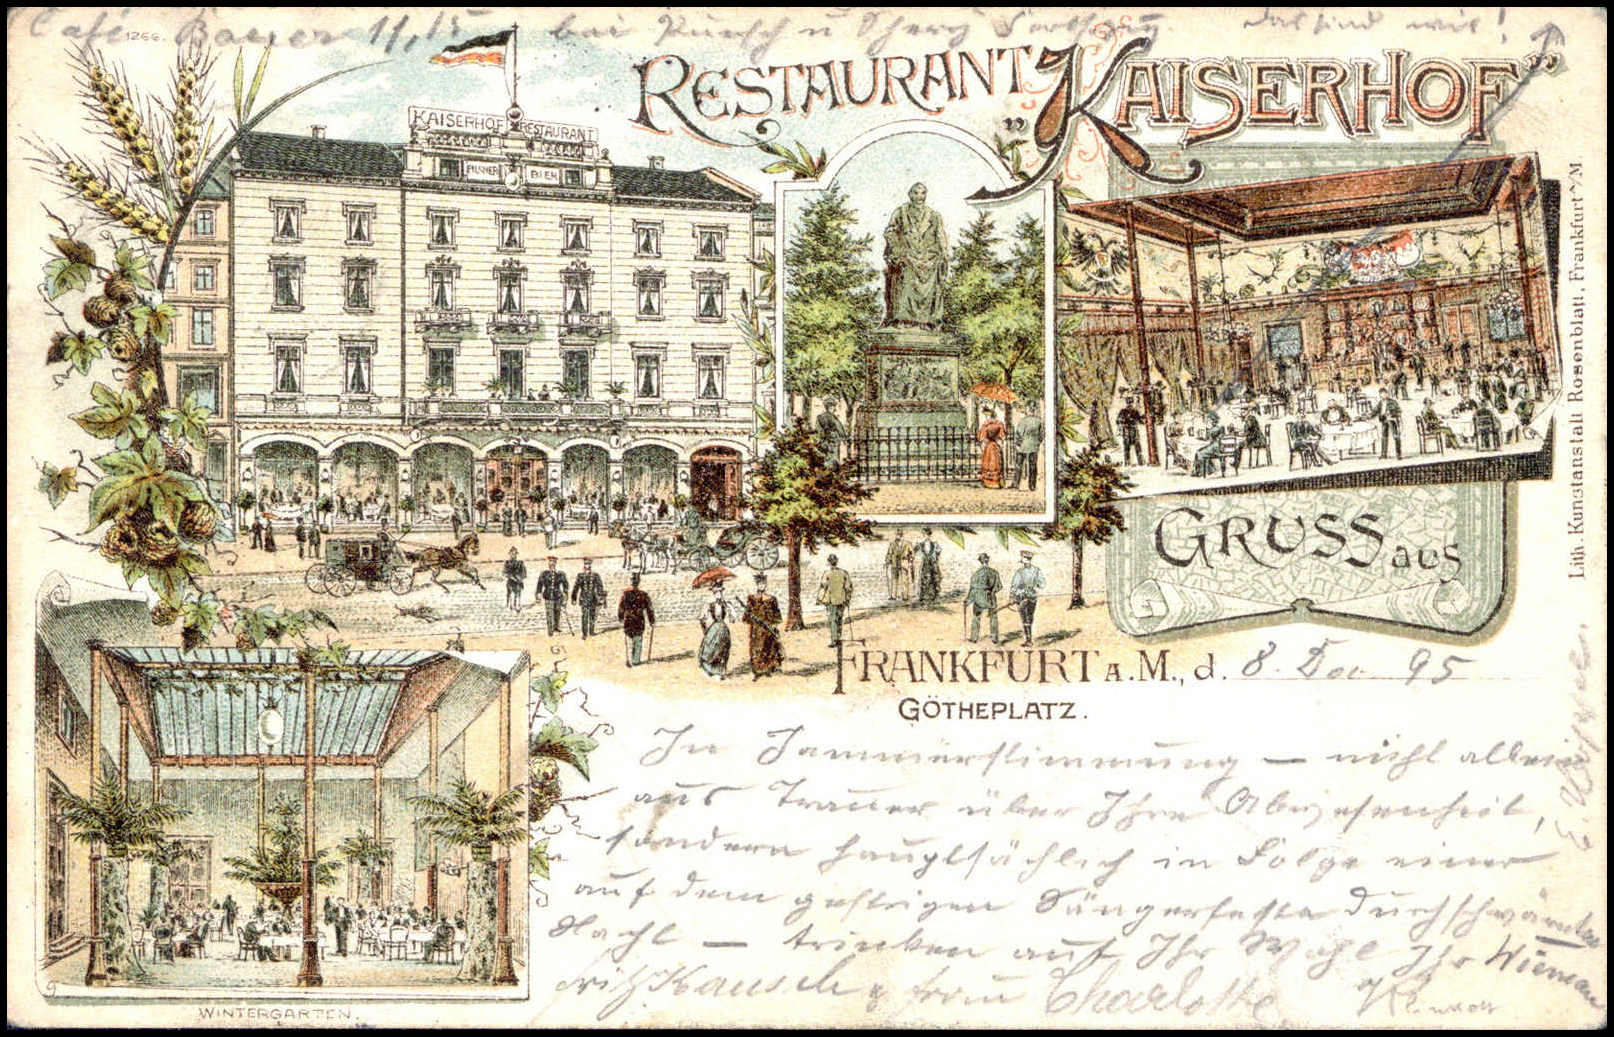 Café Bauer 11, bei Punsch u Das sind wir!
1266.
RESTAURANT „KAISERHOF"
KAISERHOF RESTAURANT
PILSNER BIER
GRUSS aus
FRANKFURT A.M., d. 8. Dec 95
GÖTHEPLATZ.
In Jammerstimmung – nicht allein
aus Trauer über Ihre Abwesenheit,
sondern hauptsächlich in Folge einer
auf dem gestrigen Sängerfeste durchschwärmten
Nacht – trinken auf Ihr Wohl Ihr Wieman
Fritz Kausch & Frau Charlotte
WINTERGARTEN.
Lith. Kunstanstalt Rosenblatt, Frankfurt a/M